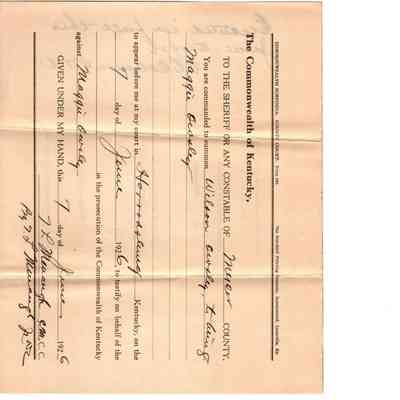 COMMONWEALTH SUBPOENA, COUNTY COURT.
The Standard Printing Company, Incorporated, Louisville, Ky.
The Commonwealth of Kentucky,
TO THE SHERIFF OR ANY CONSTABLE OF Mercer COUNTY,
You are commanded to summon Wilson Owsley, to bring
Maggie Owsley
to appear before me at my court in Harrodsburg Kentucky, on the
9 day of June 1926, to testify on behalf of the
in the prosecution of the Commonwealth of Kentucky
against Maggie Owsley
GIVEN UNDER MY HAND this 7 day of June 1926
C. M. C. C.
By